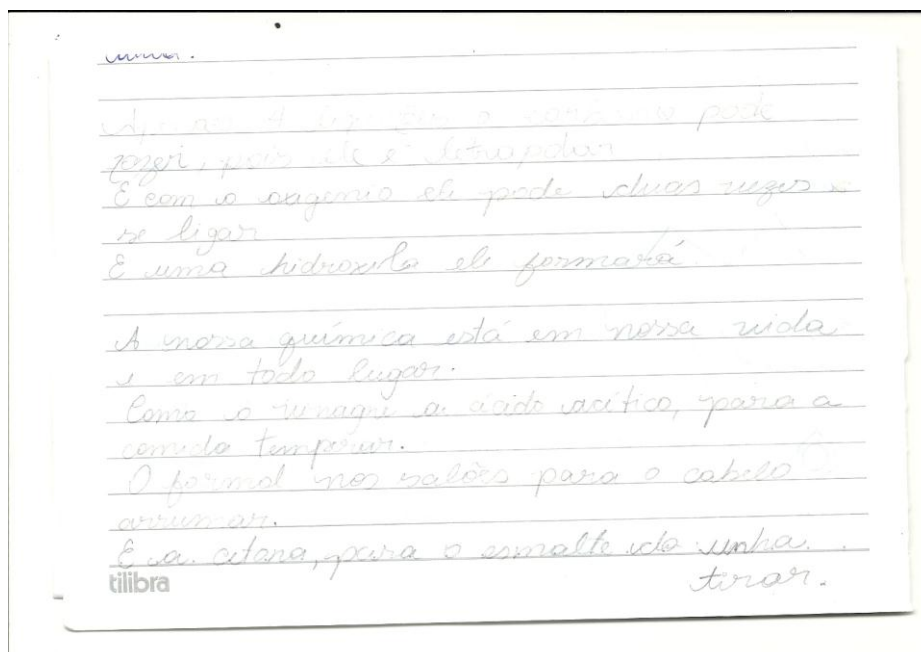 uma.
4 o carbono pode
fazer, pois ele é tetrapolar
E com o oxigenio ele pode duas vezes
se ligar
E uma hidroxila ele formará
A nossa química está em nossa vida
e em todo lugar.
Como o vinagre ou ácido acítico, para a
comida temperar.
O formol nos salões para o cabelo
arrumar.
E a cetona, para o esmalte da unha
tirar.
tilibra